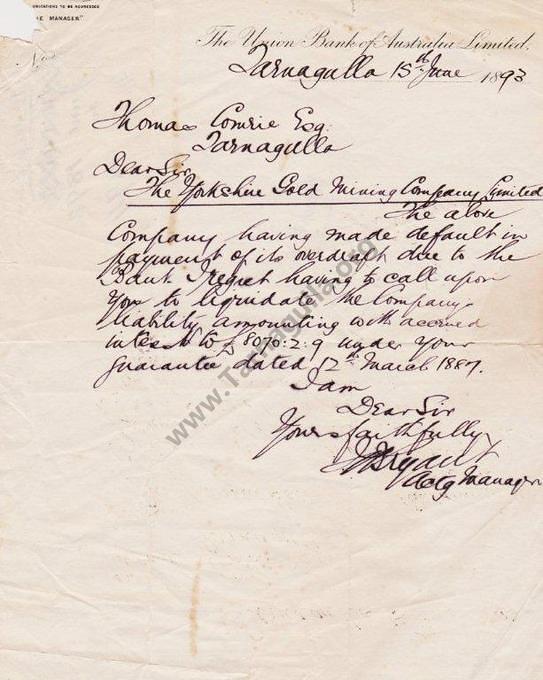 UNICATIONS TO BE ADDRESSED
HE MANAGER"
No
The Union Bank of Australia Limited.
Tarnagulla 15th June 1893
Thomas Comrie Esq
Tarnagulla
Dear Sir
The Yorkshire Gold Mining Company Limited
The above
Company having made default in
payment of its overdraft due to the
Bank I regret having to call upon
you to liquidate the Companys
liability amounting with accrued
interest to £8070:2:9 under your
guarantee dated 12th March 1887.
I am
Dear Sir
Yours faithfully
Bryant
Actg Manager
www.Tarnagulla.org